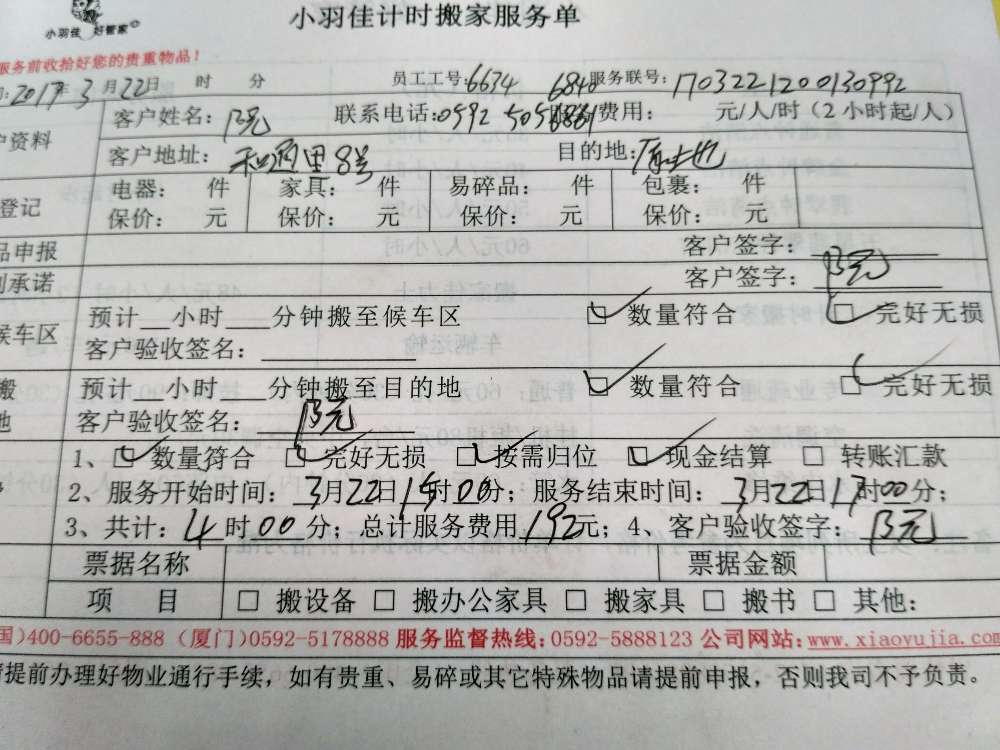 小羽佳计时搬家服务单
小羽佳 好管家
服务前收拾好您的贵重物品!
:2017年3月22日 时 分 员工工号:6634 6848 服务联号:1703221200130992
户资料 客户姓名:阮 联系电话:0592 505 费用: 元/人/时(2小时起/人)
客户地址:和通里8号 目的地:原地
登记 电器: 件 家具: 件 易碎品: 件 包裹: 件
保价: 元 保价: 元 保价: 元 保价: 元
品申报 客户签字:
承诺 客户签字:阮
候车区 预计__小时___分钟搬至候车区 ☑ 数量符合 ☑ 完好无损
客户验收签名:
搬 预计__小时___分钟搬至目的地 ☑ 数量符合 ☑ 完好无损
地 客户验收签名:阮
1、☑ 数量符合 ☑ 完好无损 ☑ 按需归位 ☑ 现金结算 □ 转账汇款
2、服务开始时间:3月22日15时00分;服务结束时间:3月22日17时00分;
3、共计:4时00分;总计服务费用192元;4、客户验收签字:阮
票据名称 票据金额
项 目 □ 搬设备 □ 搬办公家具 □ 搬家具 □ 搬书 □ 其他:
国)400-6655-888 (厦门)0592-5178888 服务监督热线:0592-5888123 公司网站:www.xiaoyujia.com
请提前办理好物业通行手续,如有贵重、易碎或其它特殊物品请提前申报,否则我司不予负责。